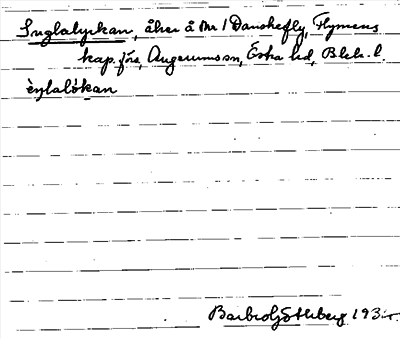 Inglalyckan, åker å Nr 1 Danskefly, Flymens
kap.förs, Augerums sn, Östra hd, Blek. l.
Barbro Göthberg 193